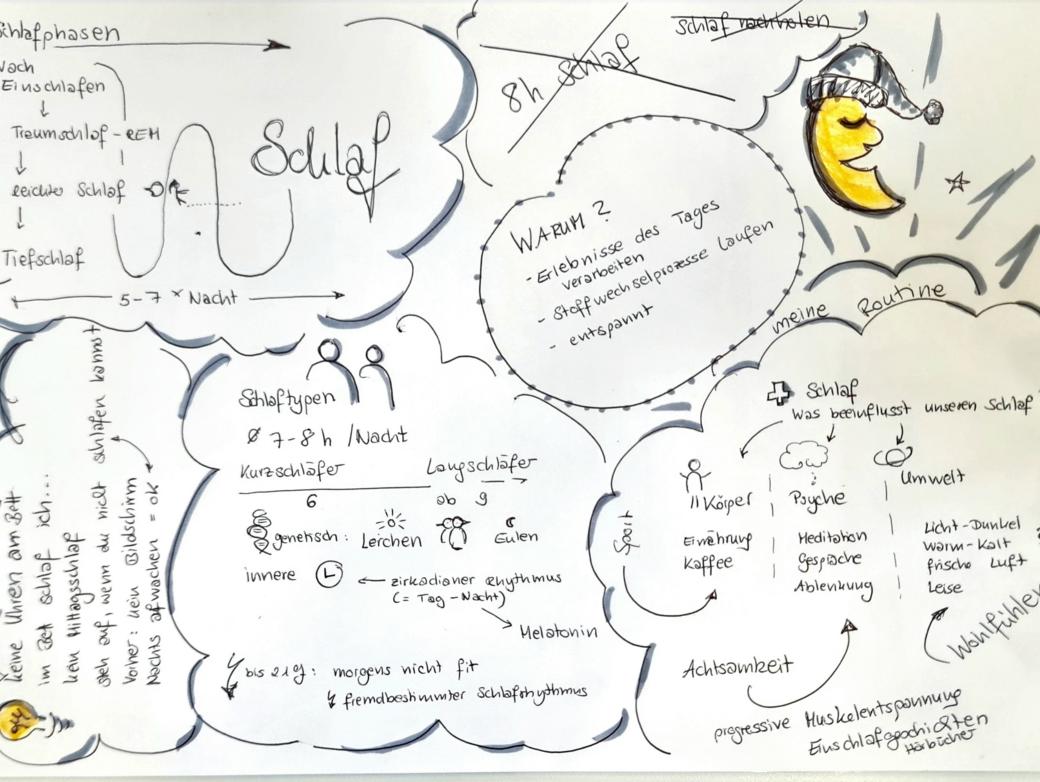 Schlafphasen
nach
Einschlafen
Traumschlaf - REM
leichter Schlaf
Tiefschlaf
5-7 x Nacht
Schlaf
8h Schlaf
Schlaf nachholen
WARUM?
- Erlebnisse des Tages
verarbeiten
- Stoffwechselprozesse laufen
- entspannt
meine Routine
Schlaf
was beeinflusst unseren Schlaf
Körper
Psyche
Umwelt
Sport
Ernährung
Kaffee
Meditation
Gespräche
Ablenkung
Licht-Dunkel
Warm-Kalt
frische Luft
Leise
Wohlfühlen
Achtsamkeit
progressive Muskelentspannung
Einschlafgeschichten
Hörbücher
Schlaftypen
Ø 7-8 h /Nacht
Kurzschläfer
6
Langschläfer
ab 9
genetisch: Lerchen Eulen
innere
zirkadianer Rhythmus
(= Tag-Nacht)
Melatonin
bis 21J: morgens nicht fit
fremdbestimmter Schlafrhythmus
keine Uhren am Bett
im Bett schlaf ich...
kein Mittagsschlaf
steh auf, wenn du nicht schlafen kannst
Vorher: kein Bildschirm
Nachts aufwachen = ok